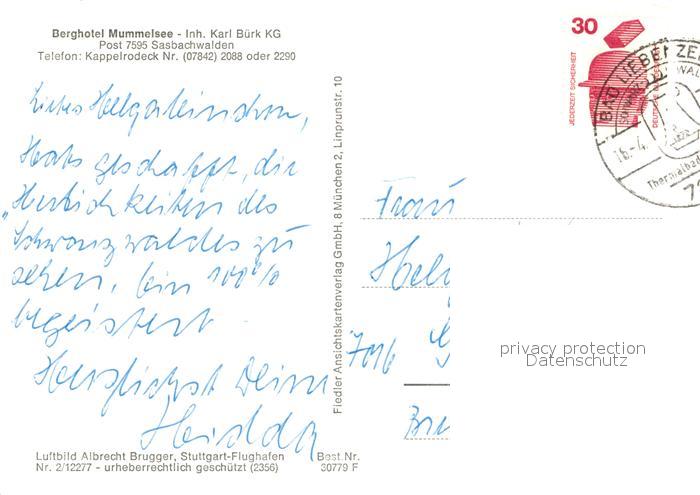 Berghotel Mummelsee - Inh. Karl Bürk KG
Post 7595 Sasbachwalden
Telefon: Kappelrodeck Nr. (07842) 2088 oder 2290
Liebes Helgaleinchen,
Habs geschafft, die
"Herrlichkeiten des
Schwarzwaldes zu
sehen, bin 100%
begeistert.
Herzlichst Deine
Hedda
Luftbild Albrecht Brugger, Stuttgart-Flughafen
Nr. 2/12277 - urheberrechtlich geschützt (2356)
Best.Nr.
30779 F
Fiedler Ansichtskartenverlag GmbH, 8 München 2, Linprunstr. 10
30
JEDERZEIT SICHERHEIT
DEUTSCHE
BAD LIEBENZE
16.-4.
Thermalbad
Frau
Hel
7016 G
privacy protection
Datenschutz